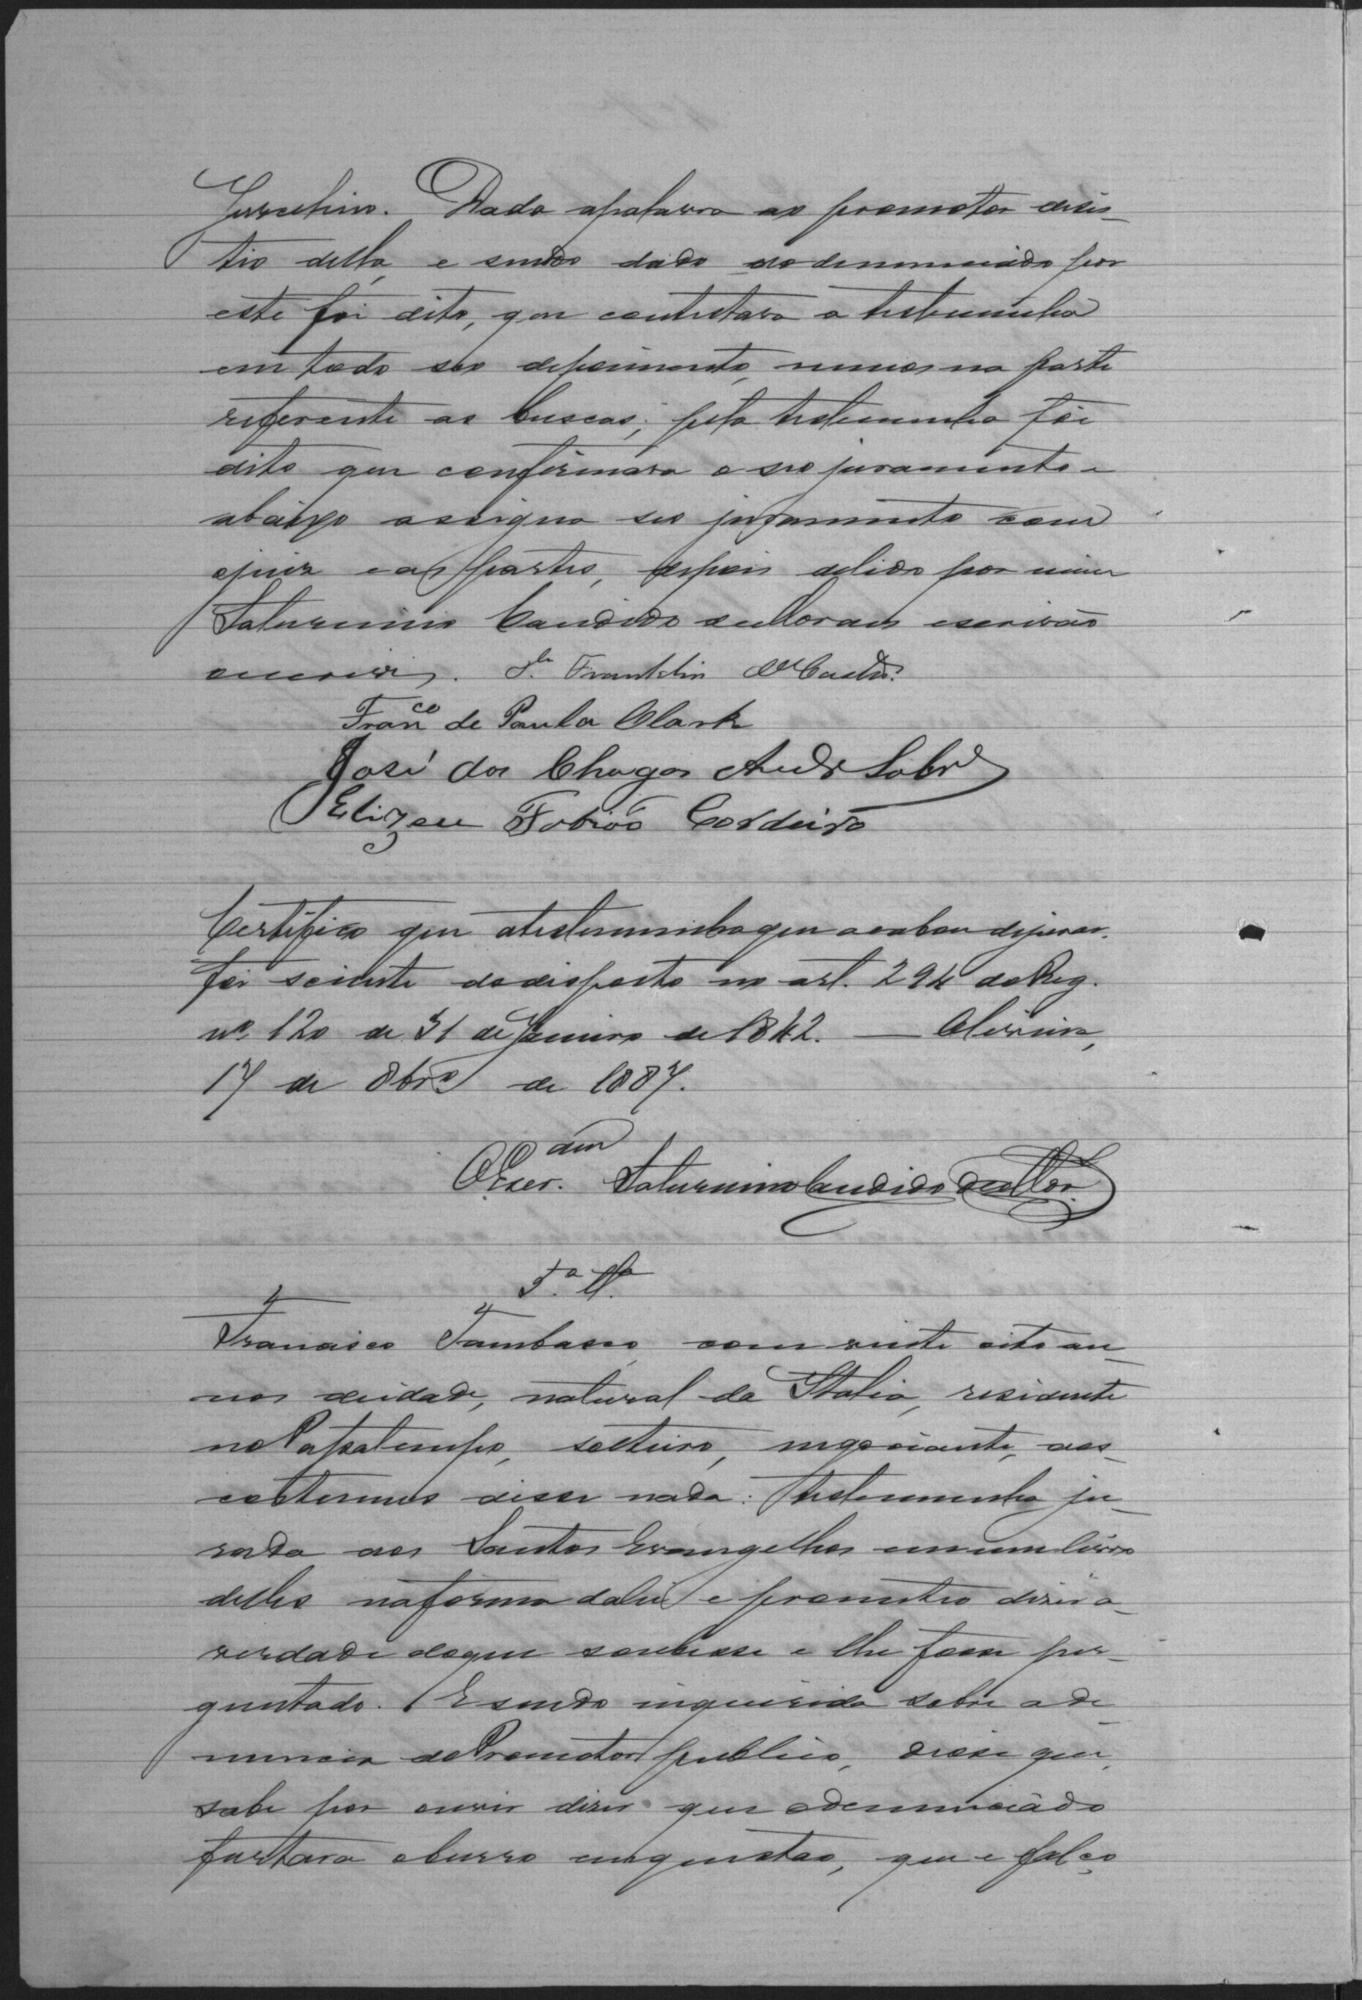 Juscelino. Dada apalavra ao promotor desis-
tio della, e sendo dado ao denunciado por
este foi dito, que contestava a testemunha
em todo seo depoimento, menos na parte
referente as buscas; pela testemunha foi
dito que confirmava o seo juramento e
abaixo assigna seo juramento com
ojuiz e as partes, depois delido por mim
Saturnino Candido escrivão
escrevi. Franklin de Castro.
Fran.co de Paula Clark
José das Chagas Andr.e Sobr.o
Elizeu Fabião Cordeiro
Certifico que atestemunha que acabou dejurar,
foi sciente dodisposto no art. 294 do Reg.
nº 120 de 31 de Janeiro de 1842. —
17 de 8br.o de 1887.
O Escr.am Saturnino Candido
5.a T.a
Francisco Tambasco, com vinte oito an-
nos deidade, natural da Italia, residente
no Papatempo, solteiro, negociante, aos
costumes disse nada. Testemunha ju-
rada aos Santos Evangelhos em um livro
delles naforma dalei e prometteo dizer a
verdade doque soubesse e lhe fosse per-
guntado. E sendo inquirida sobre a de-
nuncia do Promotor publico, disse que,
sabe por ouvir dizer que odenunciado
furtara oburro emquestão, que e falço